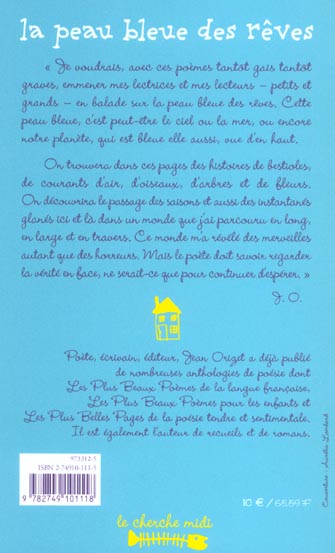 la peau bleue des rêves
« Je voudrais, avec ces poèmes tantôt gais tantôt
graves, emmener mes lectrices et mes lecteurs – petits et
grands – en balade sur la peau bleue des rêves. Cette
peau bleue, c'est peut-être le ciel ou la mer, ou encore
notre planète, qui est bleue elle aussi, vue d'en haut.
On trouvera dans ces pages des histoires de bestioles,
de courants d'air, d'oiseaux, d'arbres et de fleurs.
On découvrira le passage des saisons et aussi des instantanés
glanés ici et là dans un monde que j'ai parcouru en long,
en large et en travers. Ce monde m'a révélé des merveilles
autant que des horreurs. Mais le poète doit savoir regarder
la vérité en face, ne serait-ce que pour continuer d'espérer. »
J. O.
Poète, écrivain, éditeur, Jean Orizet a déjà publié
de nombreuses anthologies de poésie dont
Les Plus Beaux Poèmes de la langue française,
Les Plus Beaux Poèmes pour les enfants et
Les Plus Belles Pages de la poésie tendre et sentimentale.
Il est également l'auteur de recueils et de romans.
973312-5
ISBN 2-74910-111-5
9 782749 101118
10 € / 65.59 F
le cherche midi
Couverture : Aurélia Lombard